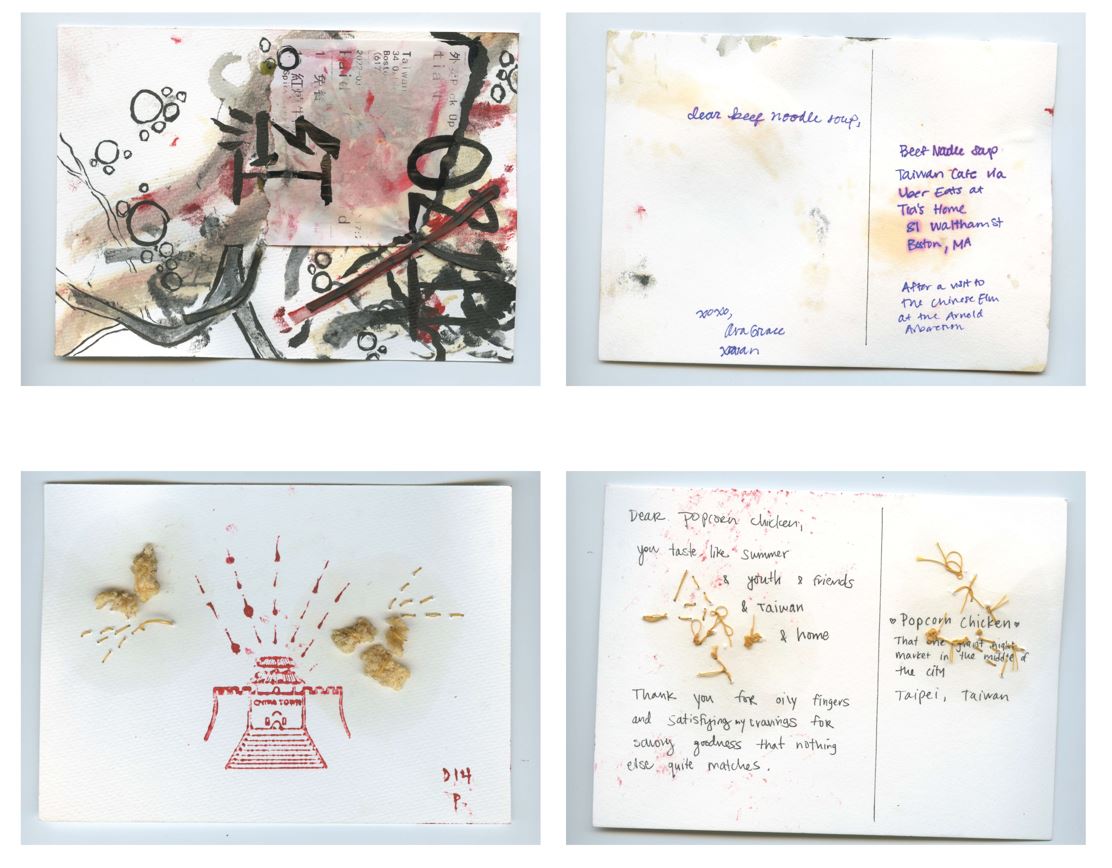 外
Pick Up
Taiwan
34 O
Bost
(617
紅
紅
dear beef noodle soup,
xoxo,
Ava Grace
Beef Nodle Soup
Taiwan Cafe via
Uber Eats at
Tea's Home
81 Waltham St
Boston, MA
After a visit to
the Chinese Elm
at the Arnold
Arboretum
D14
P.
Dear Popcorn chicken,
you taste like summer
& youth & friends
& Taiwan
& home
Thank you for oily fingers
and satisfying my cravings for
savory goodness that nothing
else quite matches.
♥ Popcorn Chicken ♥
That one giant night
market in the middle of
the city
Taipei, Taiwan